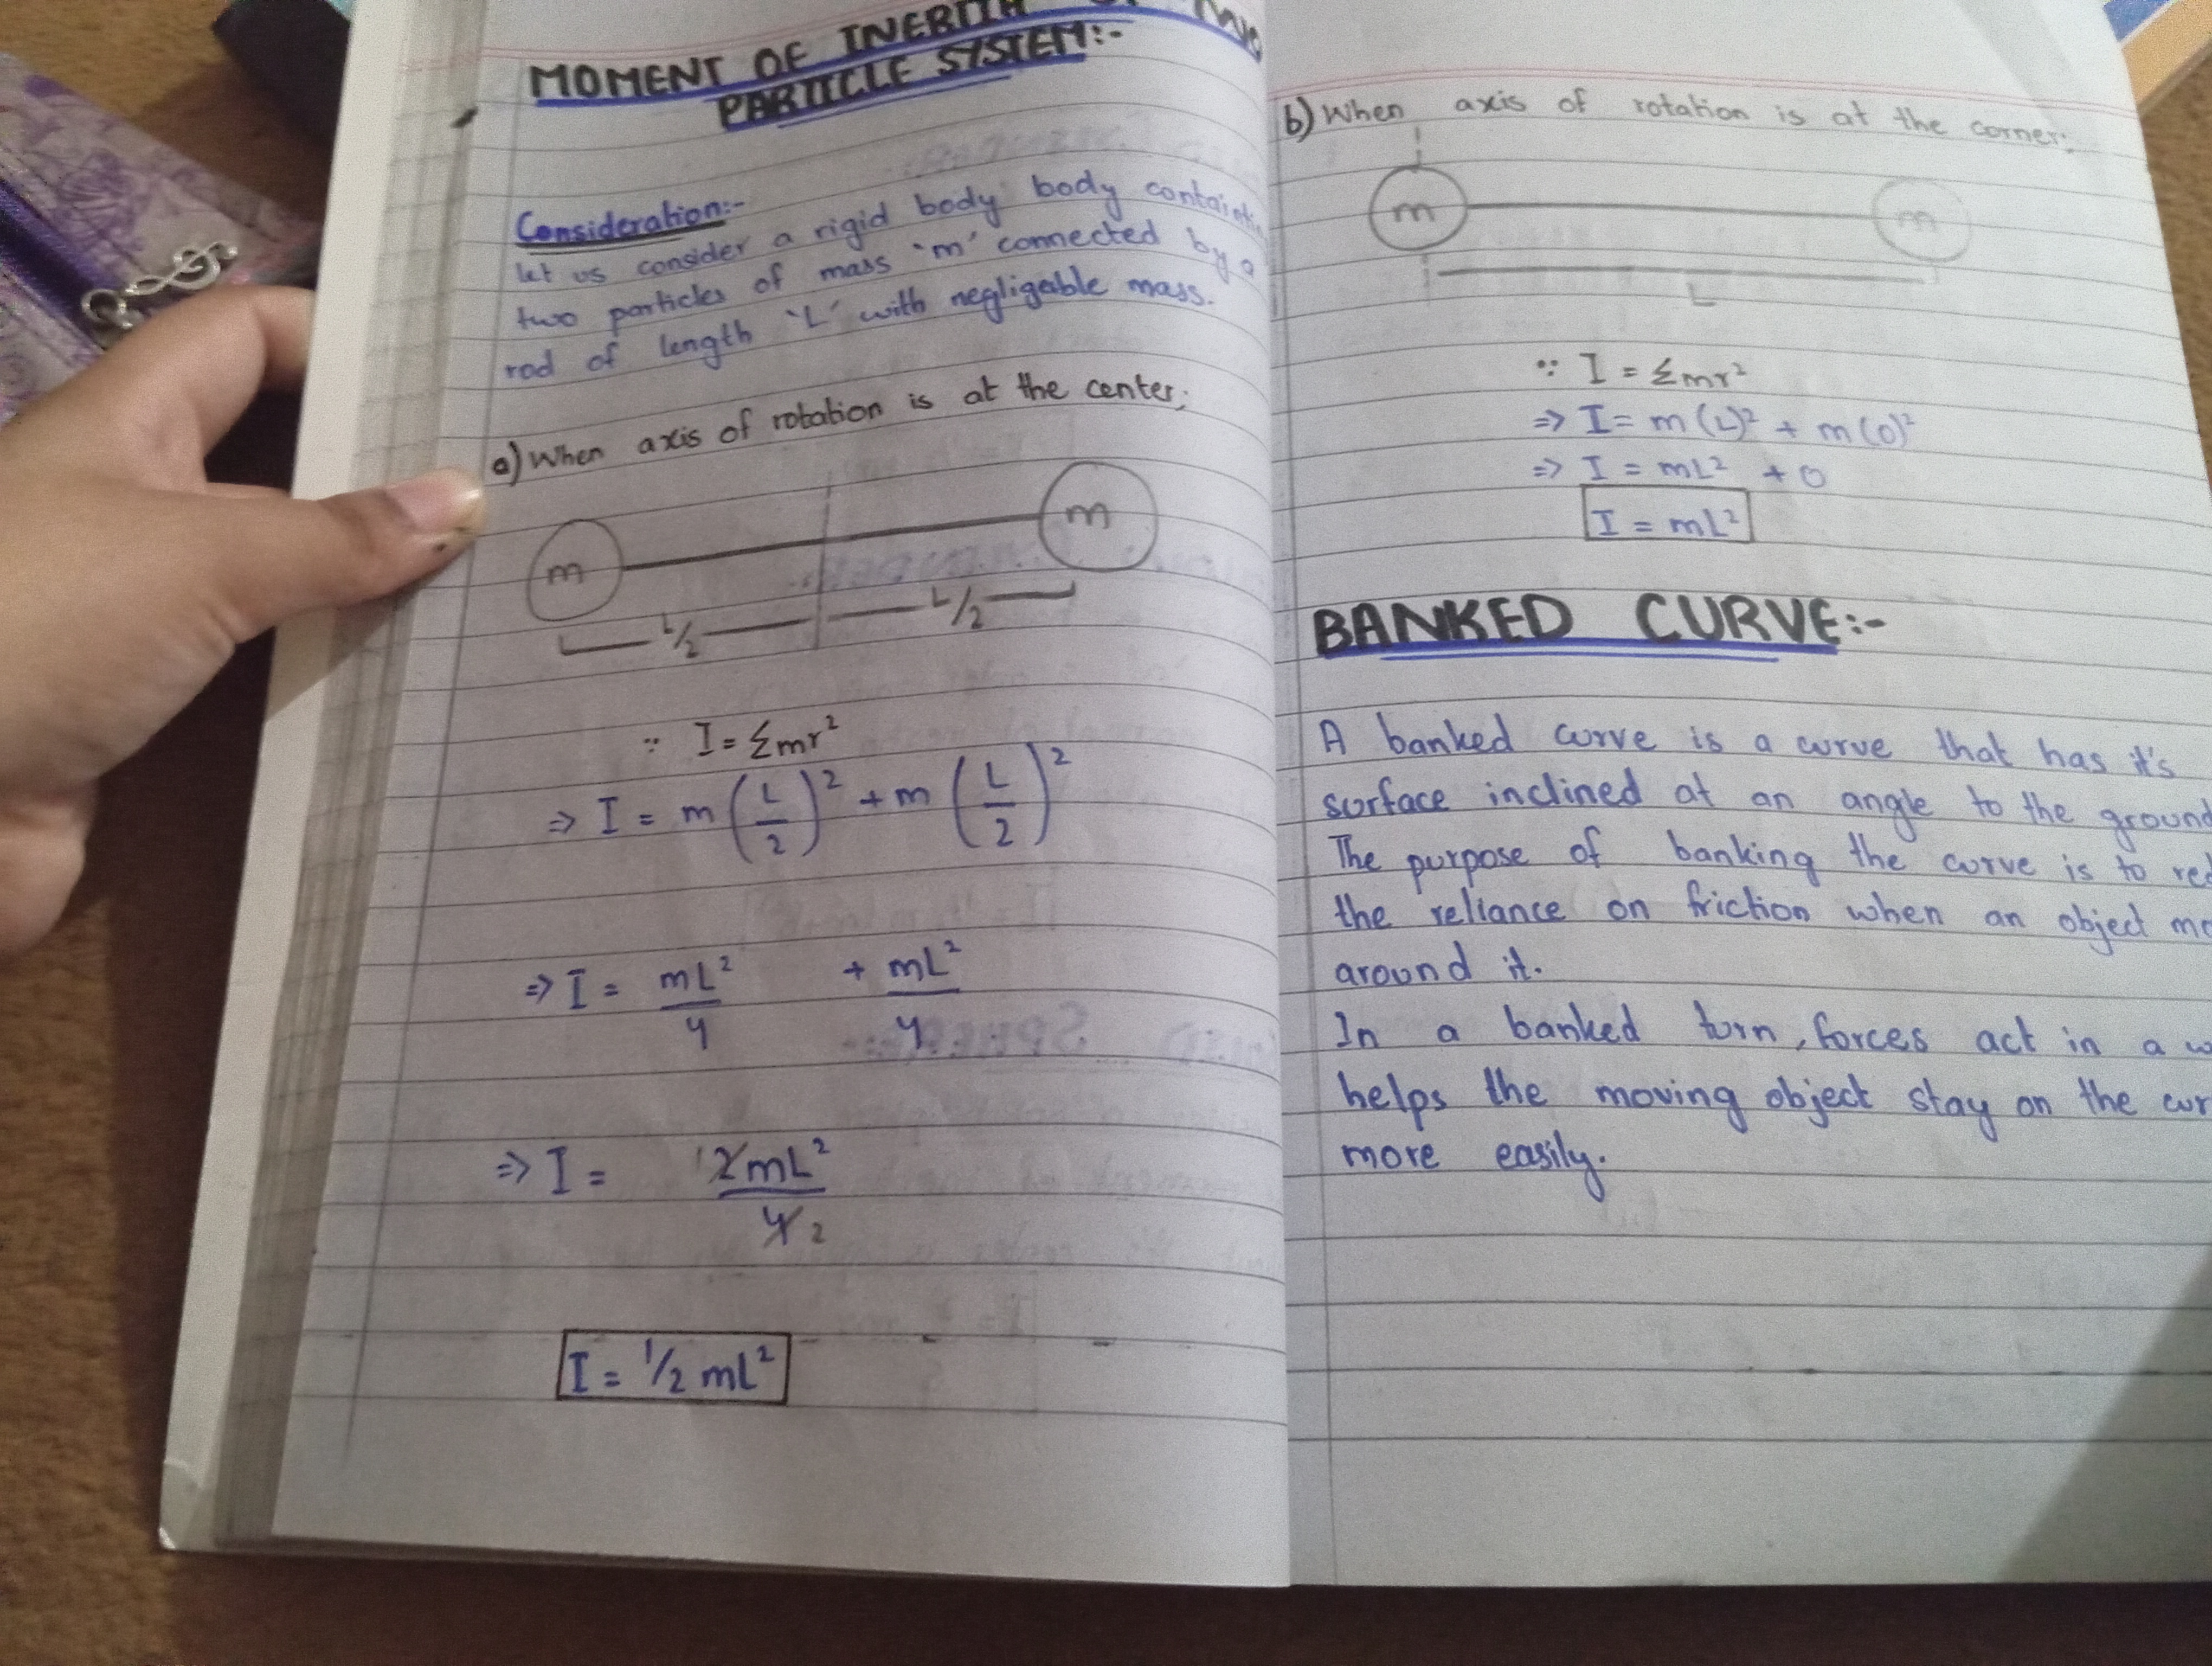 MOMENT OF INERTIA OF TWO
PARTICLE SYSTEM:-
Consideration:-
let us consider a rigid body body
two particles of mass 'm' connected by a
rod of length 'L' with negligable mass.
a) When axis of rotation is at the center;
m m
L/2 L/2
∵ I = Σmr²
⇒ I = m (L/2)² + m (L/2)²
⇒ I = mL²/4 + mL²/4
⇒ I = 12mL²/42
I = 1/2 mL²
b) When axis of rotation is at the corner;
m m
L
∵ I = Σmr²
⇒ I = m (L)² + m (0)²
⇒ I = mL² + 0
I = mL²
BANKED CURVE:-
A banked curve is a curve that has it's
surface inclined at an angle to the ground
The purpose of banking the curve is to
the reliance on friction when an object
around it.
In a banked turn, forces act in a
helps the moving object stay on the
more easily.